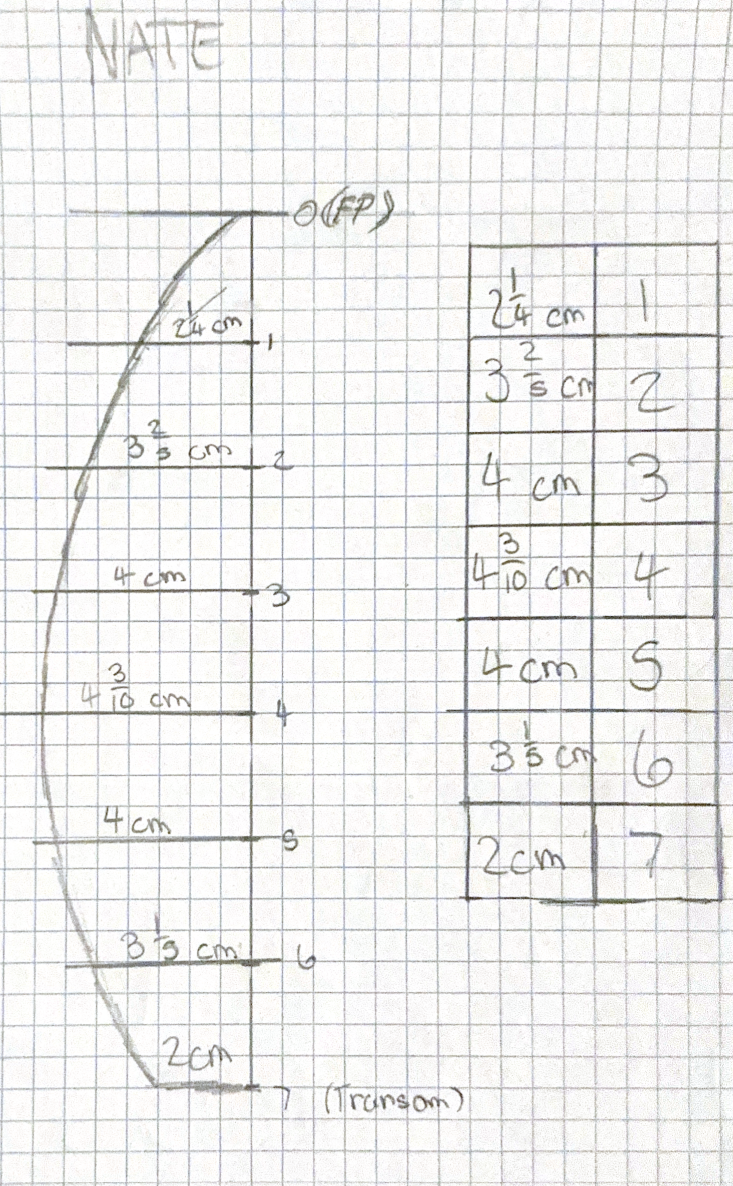 NATE
0 (FP)
2 1/4 cm 1
3 2/5 cm 2
4 cm 3
4 3/10 cm 4
4 cm 5
3 1/5 cm 6
2cm 7 (Transom)
2 1/4 cm 1
3 2/5 cm 2
4 cm 3
4 3/10 cm 4
4 cm 5
3 1/5 cm 6
2cm 7